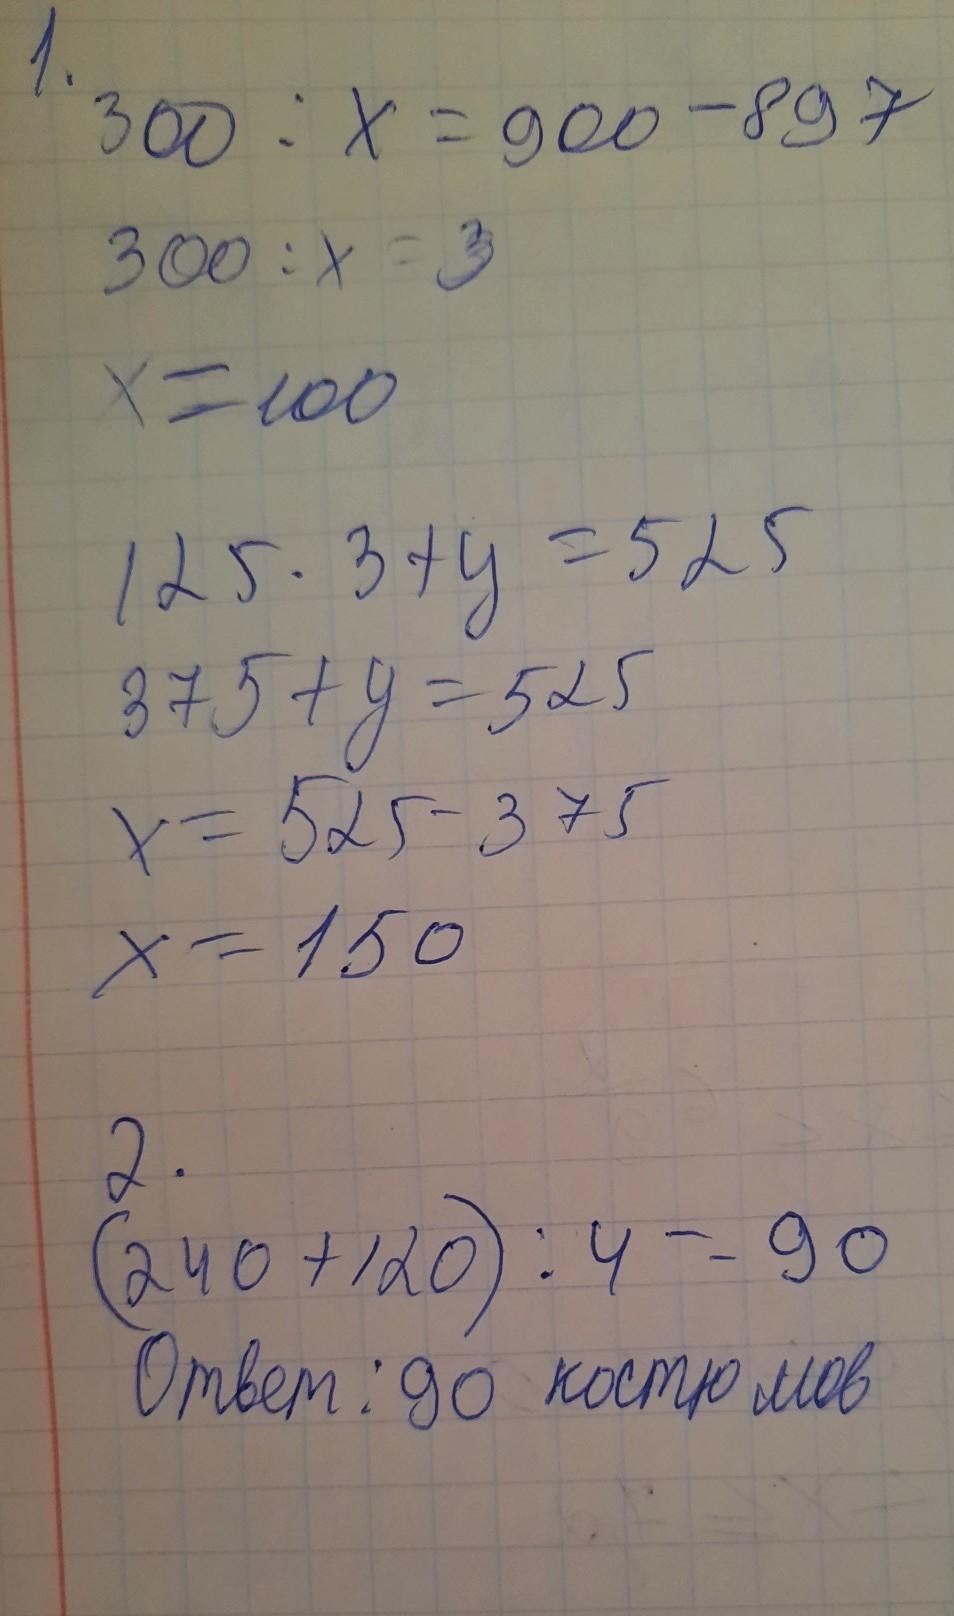 1.
300 : x = 900 - 897
300 : x = 3
x = 100
125 · 3 + y = 525
375 + y = 525
x = 525 - 375
x = 150
2.
(240 + 120) : 4 = 90
Ответ: 90 костюмов